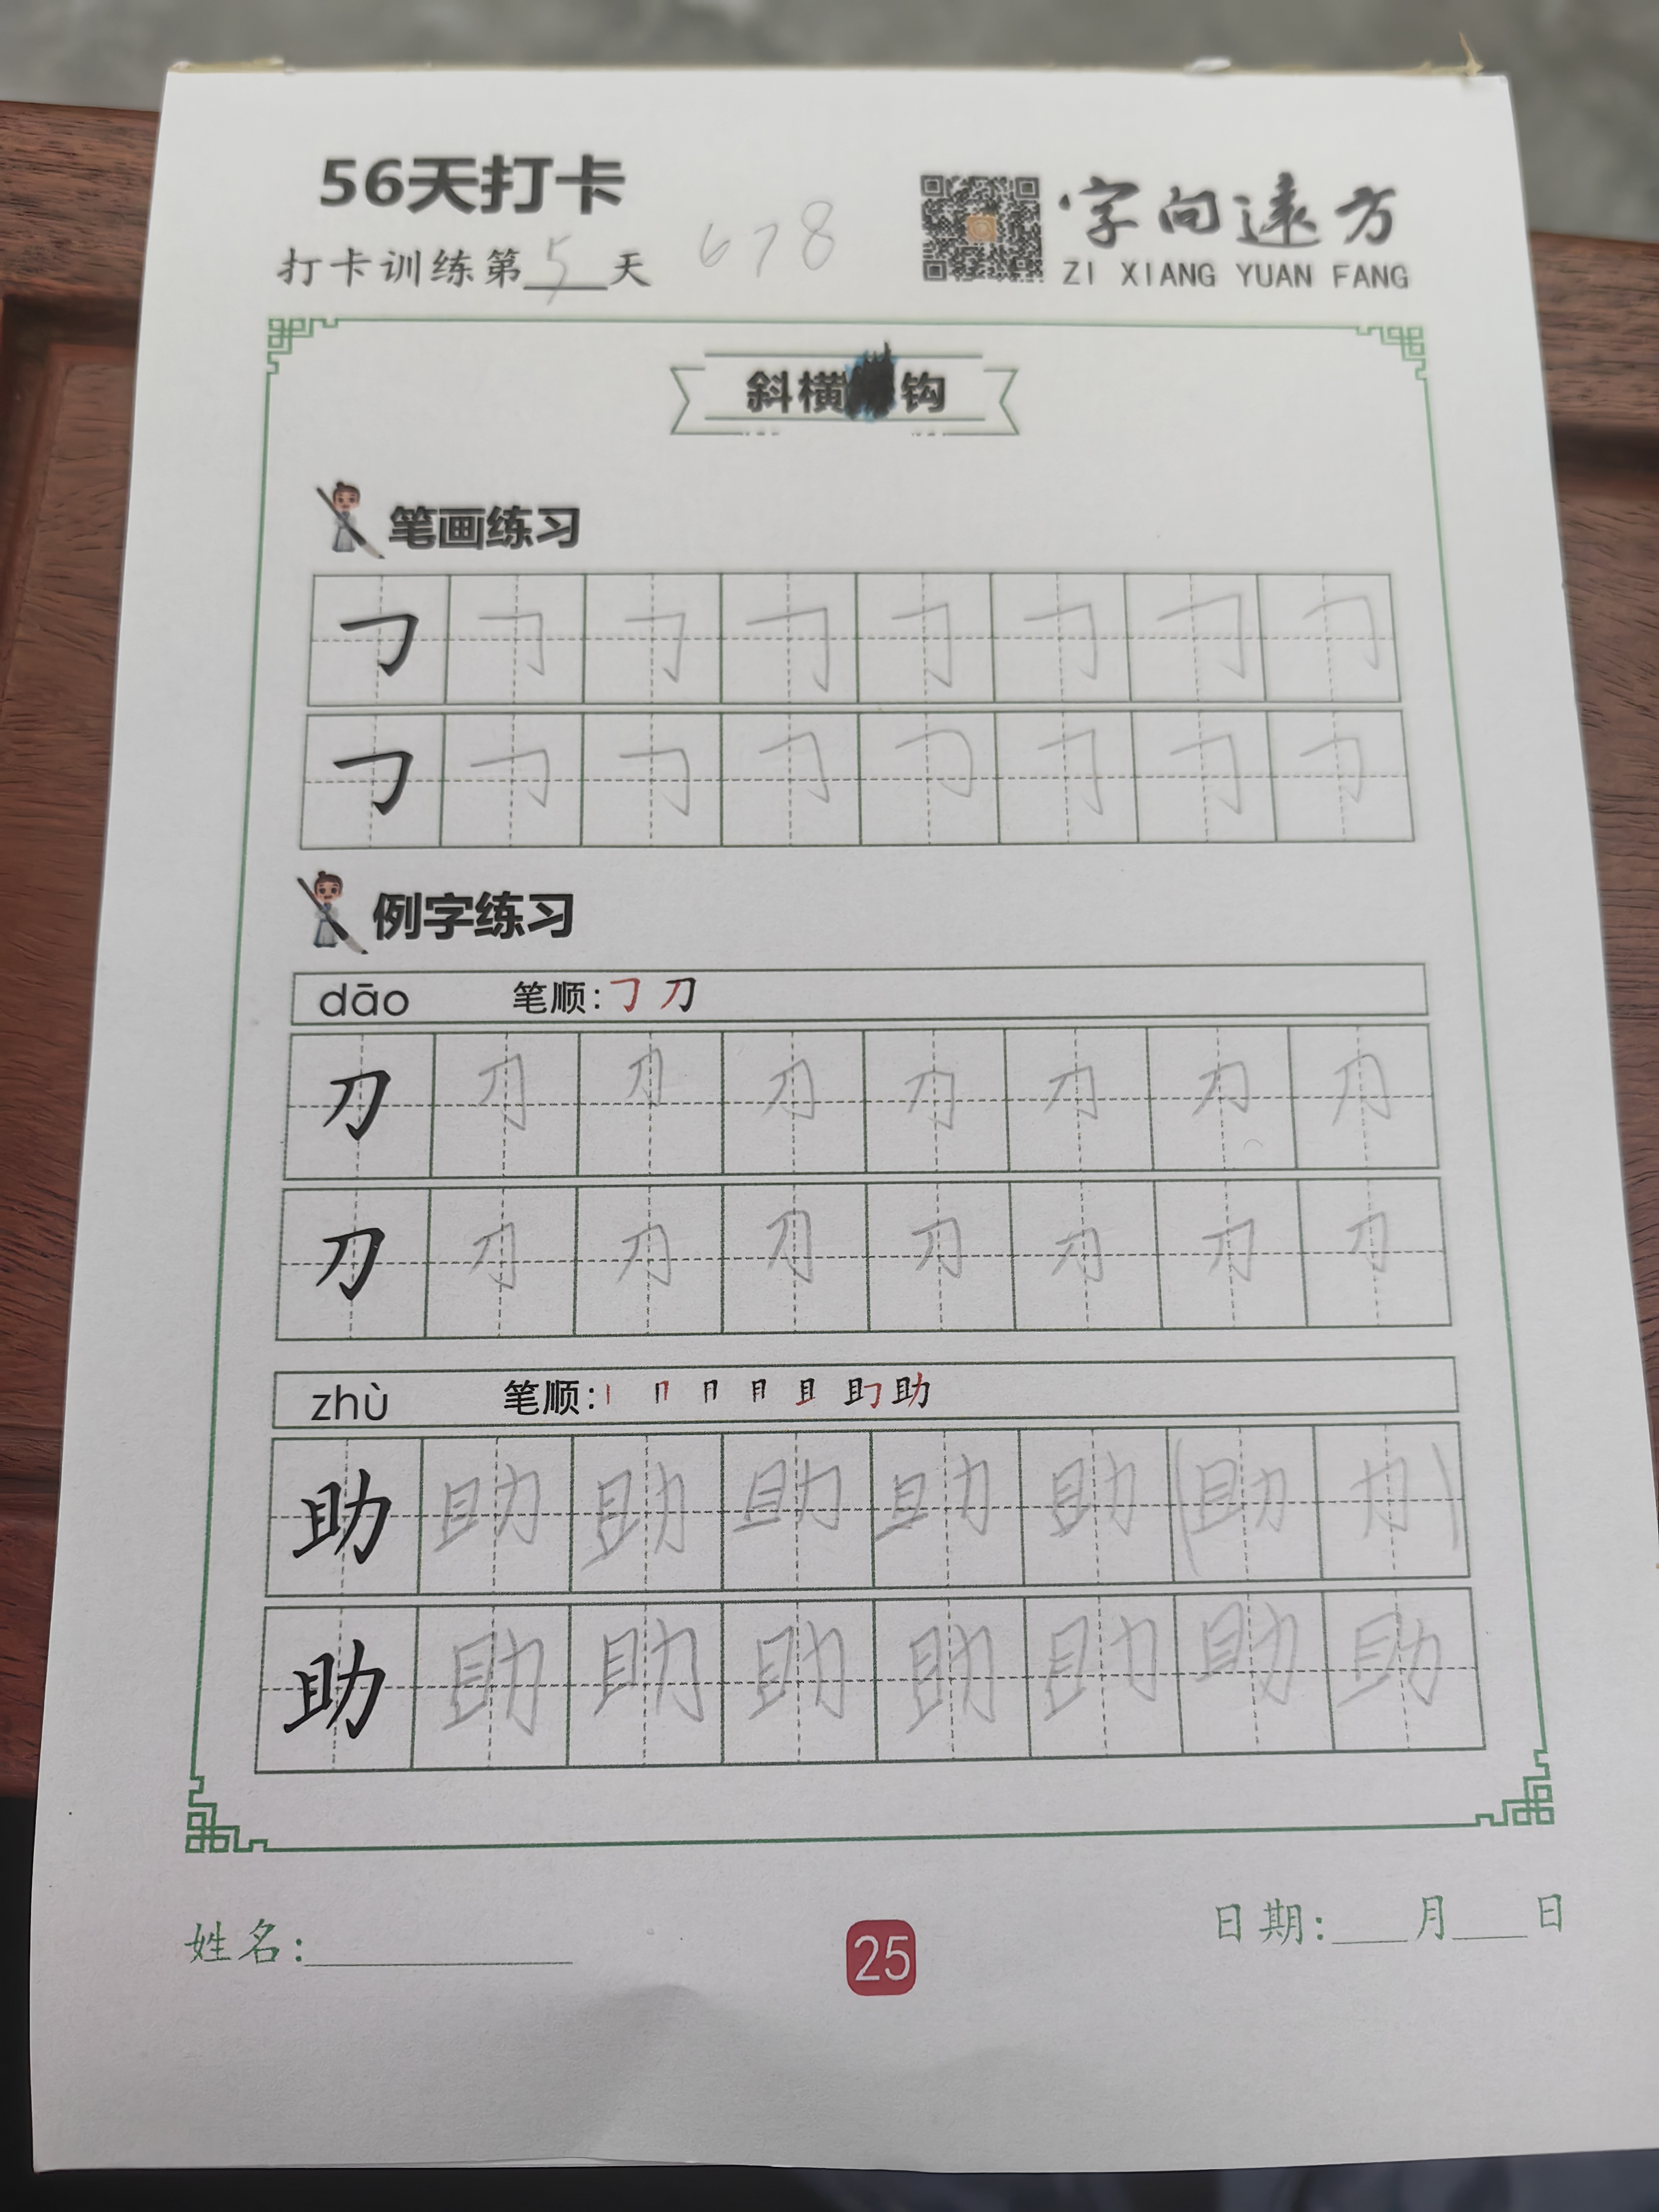 56天打卡
字向远方
ZI XIANG YUAN FANG
打卡训练第5天 678
斜横 钩
笔画练习
㇆ ㇆ ㇆ ㇆ ㇆ ㇆ ㇆ ㇆
㇆ ㇆ ㇆ ㇆ ㇆ ㇆ ㇆ ㇆
例字练习
dāo 笔顺:㇆ 刀
刀 刀 刀 刀 刀 刀 刀 刀
刀 刀 刀 刀 刀 刀 刀 刀
zhù 笔顺: 助
助 助 助 助 助 助 (助 力)
助 助 助 助 助 助 助 助
姓名:
25
日期: 月 日